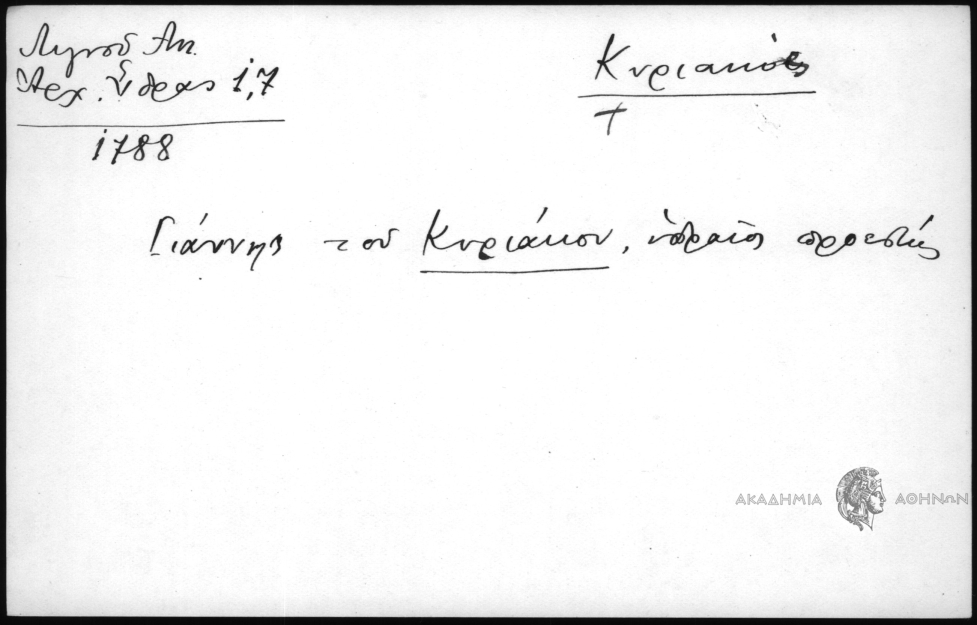 Λιγνοῦ Ἀπ.
Ἀρχ. Ὕδρας 1,7
1788
Κυριακός
+
Γιάννης τοῦ Κυριάκου, ὑδραῖος προεστώς
ΑΚΑΔΗΜΙΑ ΑΘΗΝΩΝ